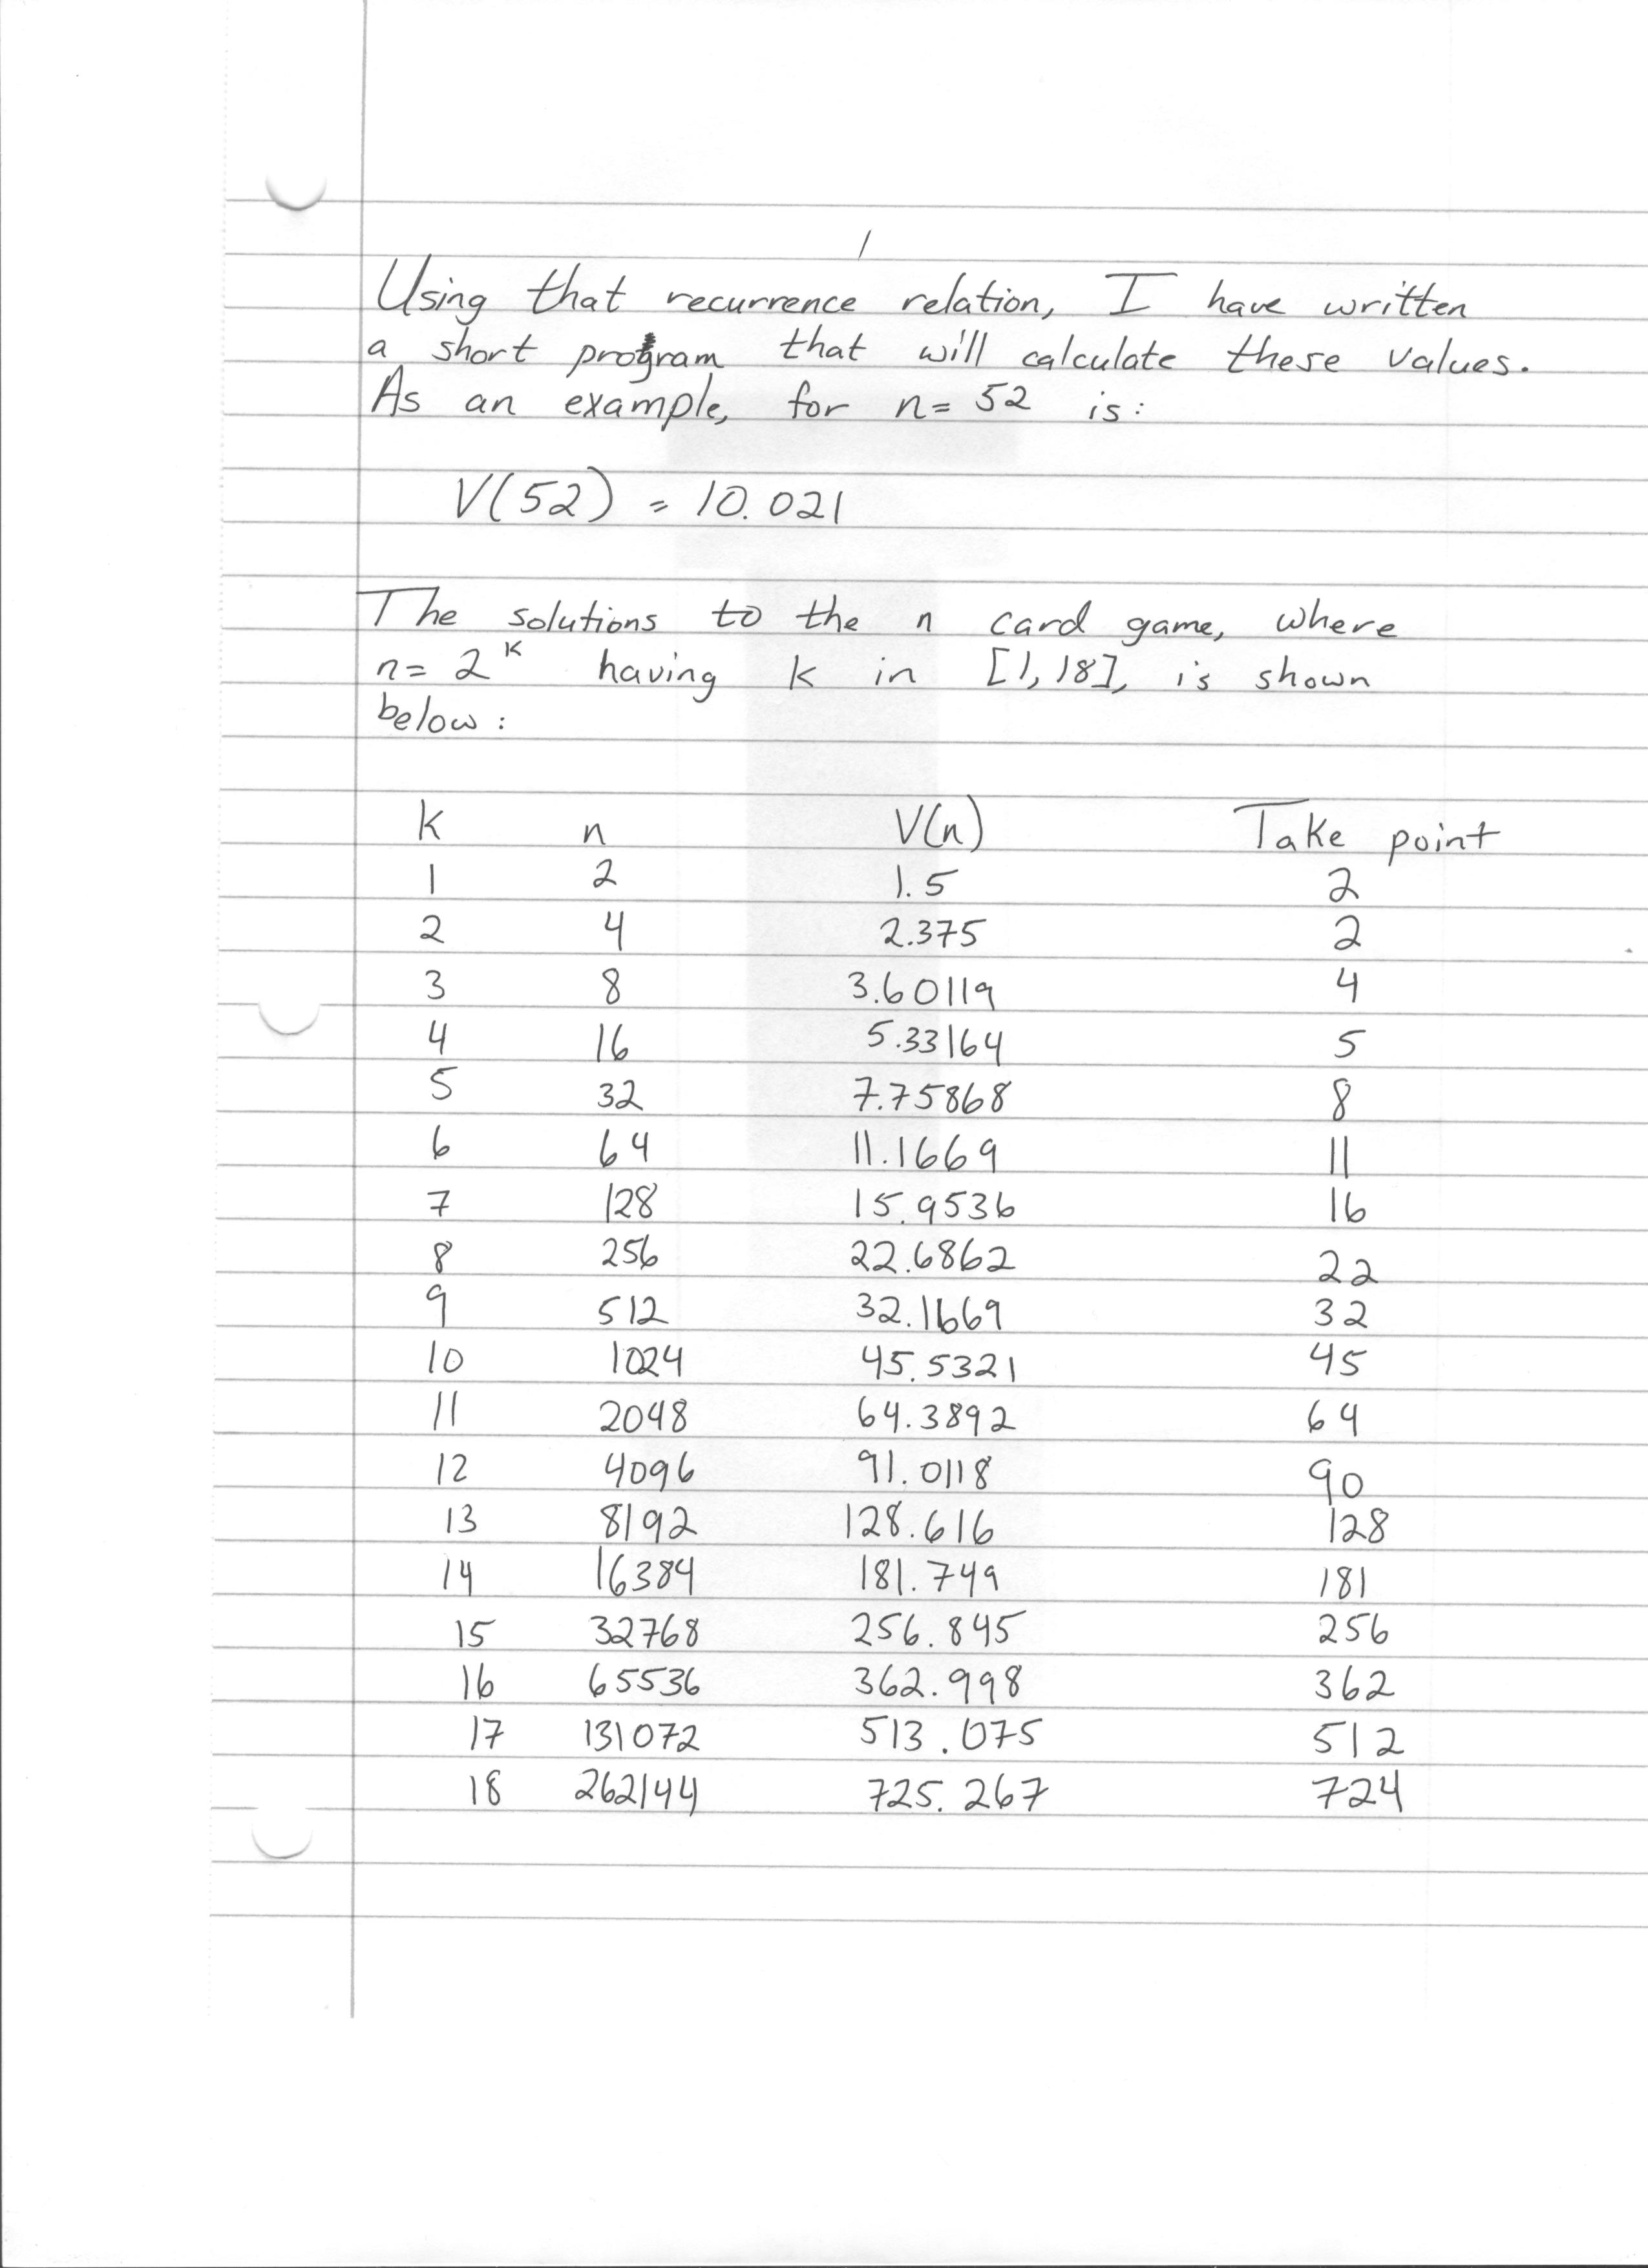 1
Using that recurrence relation, I have written
a short program that will calculate these values.
As an example, for n = 52 is:
V(52) = 10.021
The solutions to the n card game, where
n = 2^k having k in [1,18], is shown
below:
k n V(n) Take point
1 2 1.5 2
2 4 2.375 2
3 8 3.60119 4
4 16 5.33164 5
5 32 7.75868 8
6 64 11.1669 11
7 128 15.9536 16
8 256 22.6862 22
9 512 32.1669 32
10 1024 45.5321 45
11 2048 64.3892 64
12 4096 91.0118 90
13 8192 128.616 128
14 16384 181.749 181
15 32768 256.845 256
16 65536 362.998 362
17 131072 513.075 512
18 262144 725.267 724